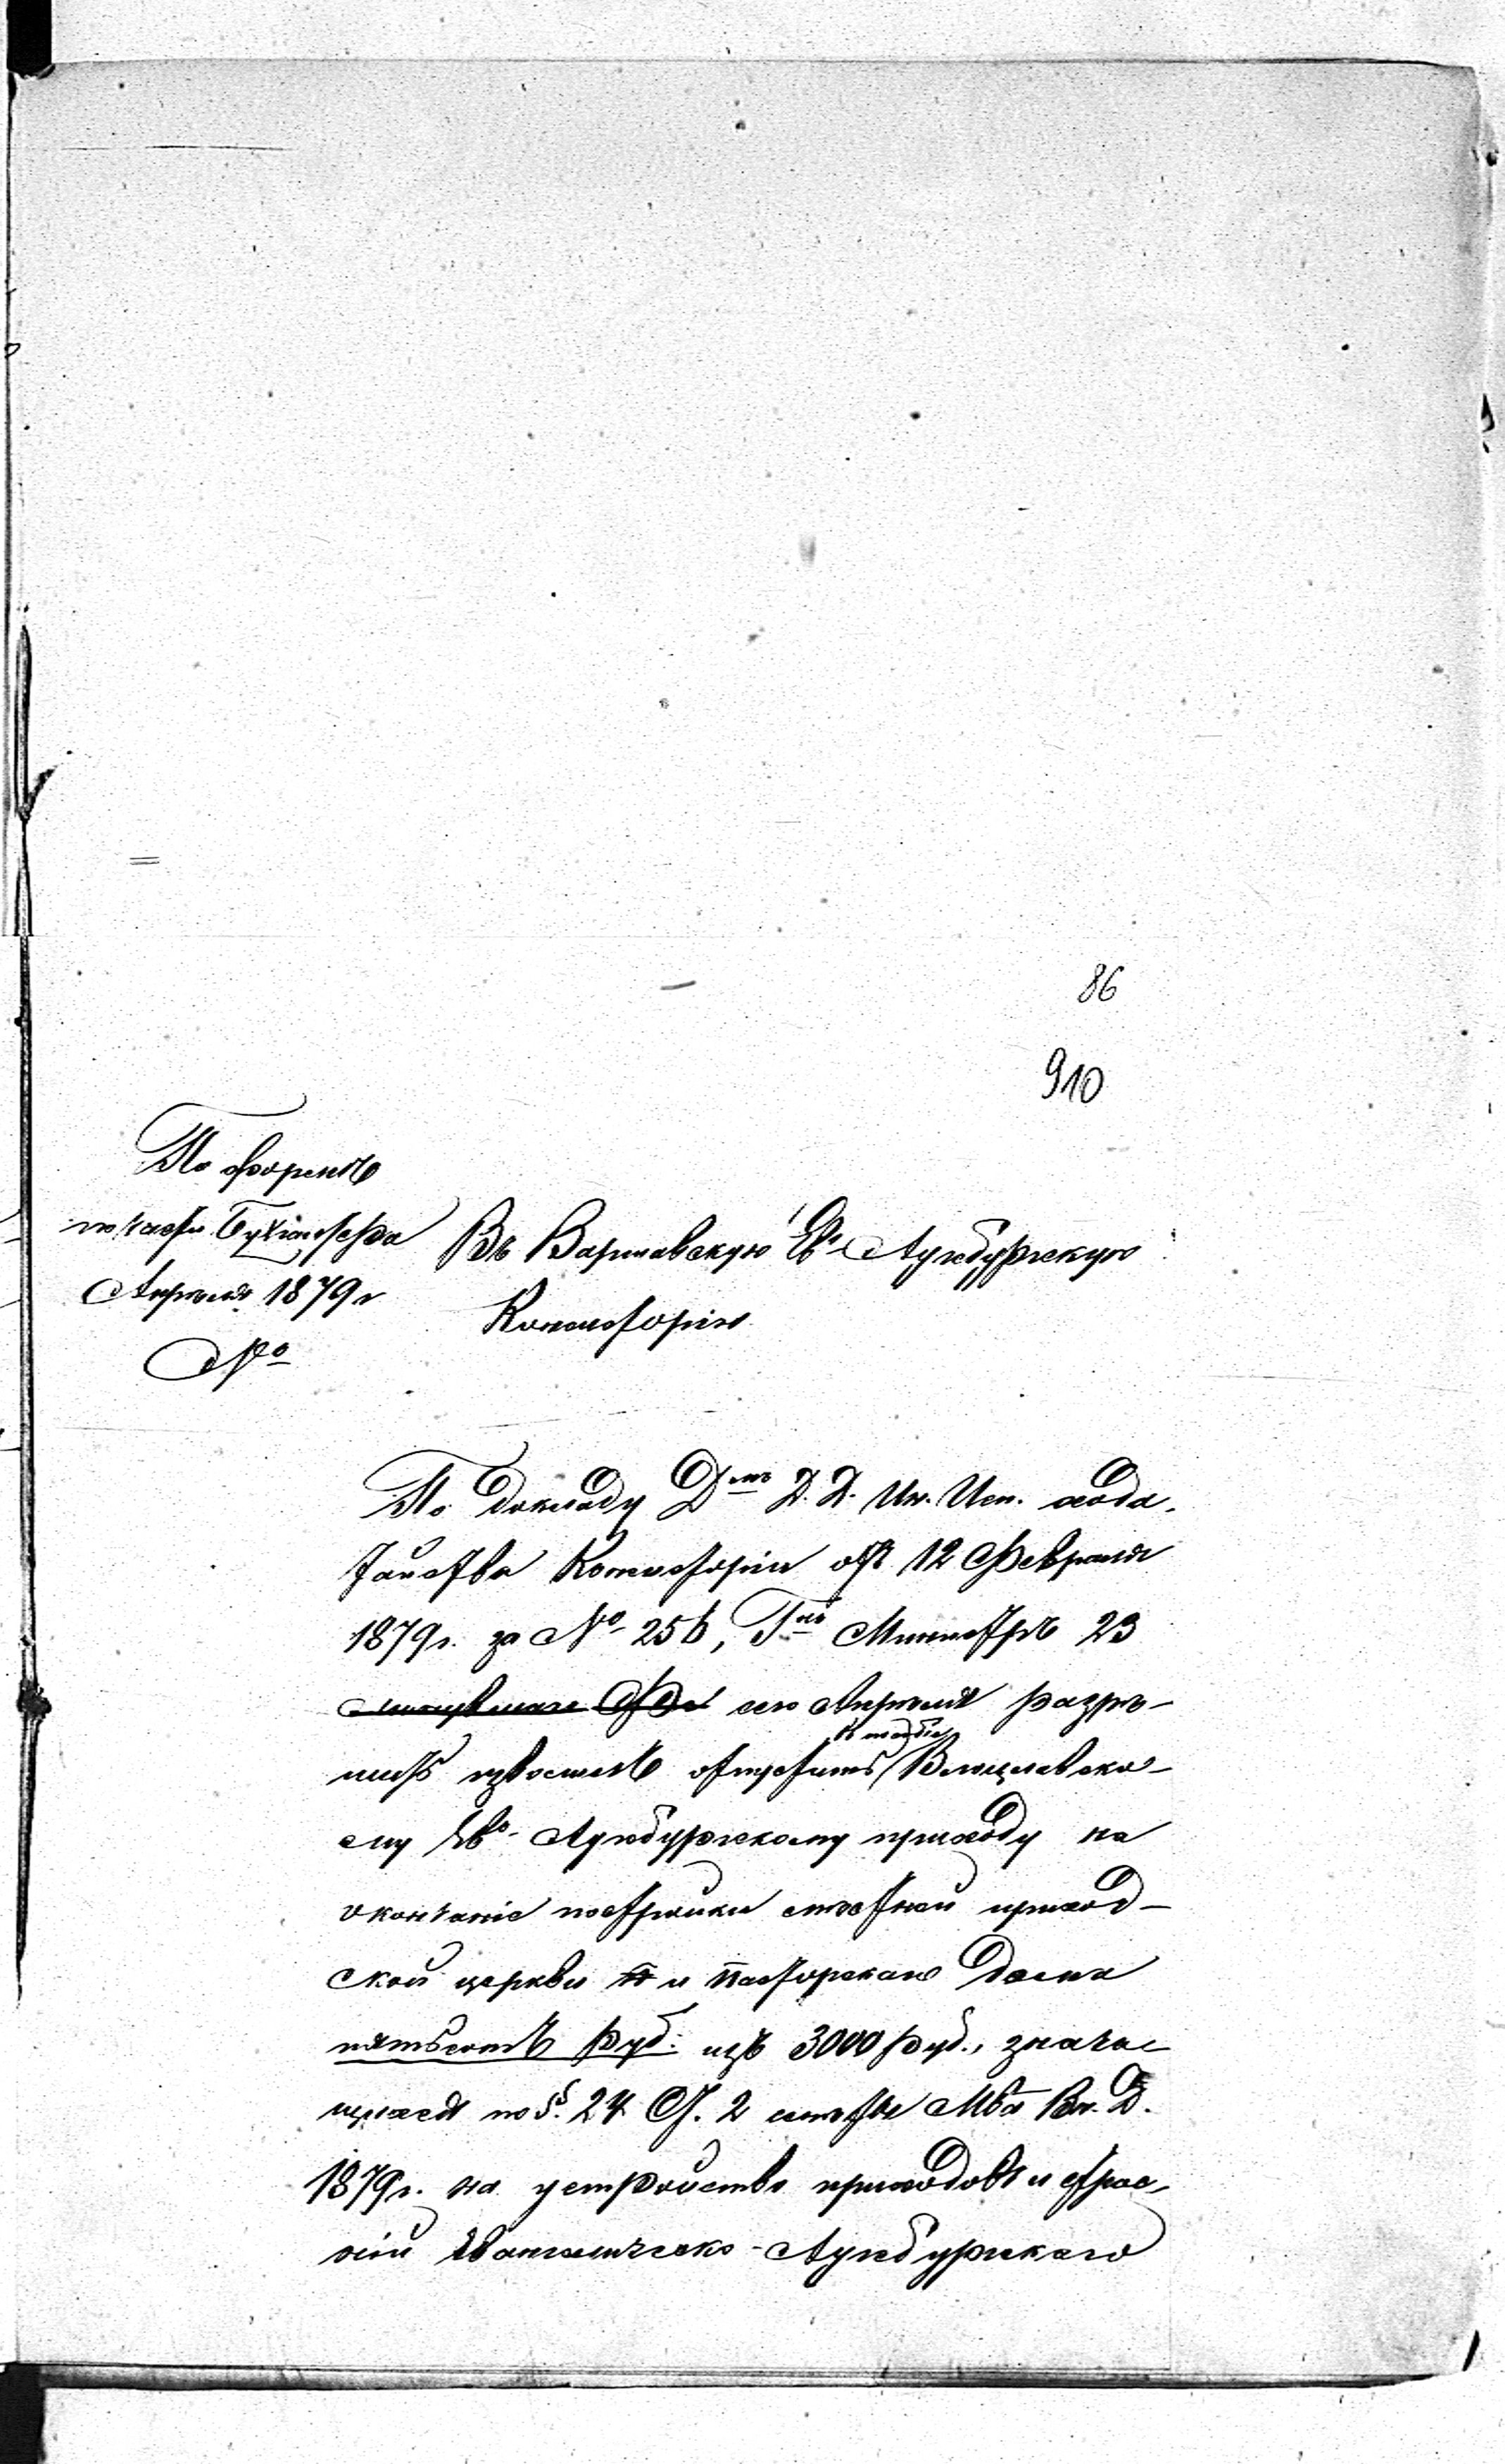 86
910
По формѣ
по части Бухгалтера
Апрѣля 1879 г
№
Въ Варшавскую Ев. Аугсбургскую
Консисторію
По докладу Д–мъ Д. Д. Ин. Исп. хода-
тайства Консисторіи отъ 12 Февраля
1879 г. за № 256, Г–нъ Министръ 23
сего Апрѣля разрѣ-
шилъ изволилъ отпустить Влоцлавско-
му Ев.о Аугсбургскому приходу на
окончаніе постройки мѣстной приход-
ской церкви и пасторскаго дома
пятьсотъ руб. изъ 3000 руб., знача-
щихся по §. 24 ст. 2 смѣты Мва Вн. Д.
1879 г. на устройство приходовъ и строе-
ній Евангелическо-Аугсбургскаго